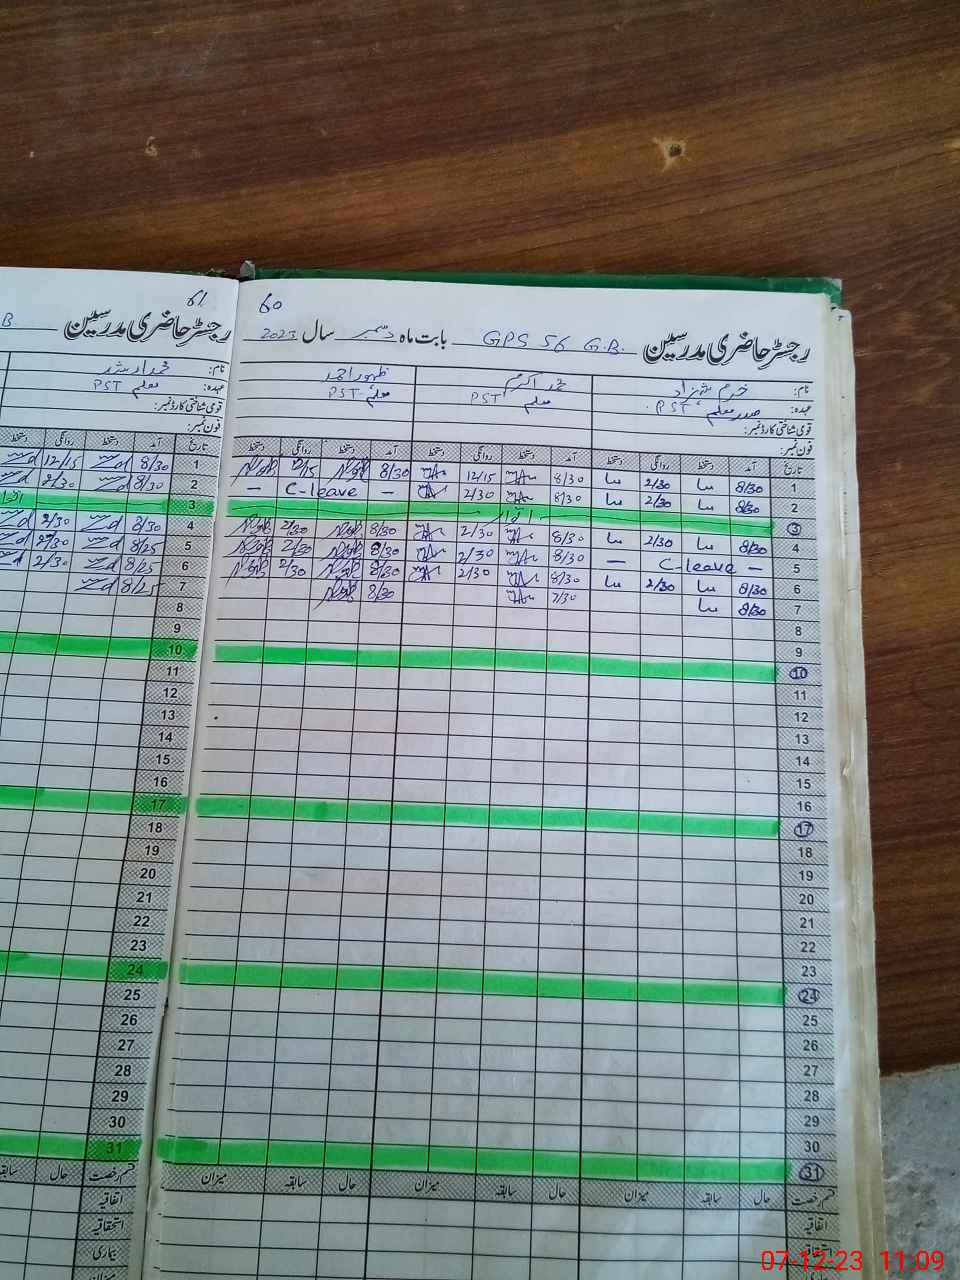 61
رجسٹر حاضری مدرسین
نام: محمد ارشد
عہدہ: معلم PST
قومی شناختی کارڈ نمبر:
فون نمبر:
دستخط روانگی دستخط آمد تاریخ
12/15 8/30 1
2/30 8/30 2
3
2/30 8/30 4
2/30 8/25 5
2/30 8/25 6
8/25 7
8
9
10
11
12
13
14
15
16
17
18
19
20
21
22
23
24
25
26
27
28
29
30
31
سابقہ حال قسم رخصت
اتفاقیہ
استحقاقیہ
بیماری
میزان
60
رجسٹر حاضری مدرسین GPS 56 G.B. بابت ماہ دسمبر سال 2023
نام: خرم شہزاد محمد اکرم ظہور احمد
عہدہ: صدر معلم PST معلم PST معلم PST
قومی شناختی کارڈ نمبر:
فون نمبر:
تاریخ آمد دستخط روانگی دستخط آمد دستخط روانگی دستخط آمد دستخط روانگی دستخط
1 8/30 2/30 8/30 12/15 8/30 12/15
2 8/30 2/30 8/30 2/30 — C-leave —
3 اتوار
4 8/30 2/30 8/30 2/30 8/30 2/30
5 — C-leave — 8/30 2/30 8/30 2/30
6 8/30 2/30 8/30 2/30 8/30 2/30
7 8/30 7/30 8/30
8
9
10
11
12
13
14
15
16
17
18
19
20
21
22
23
24
25
26
27
28
29
30
31
قسم رخصت حال سابقہ میزان حال سابقہ میزان حال سابقہ میزان
اتفاقیہ
بیماری
07-12-23 11:09